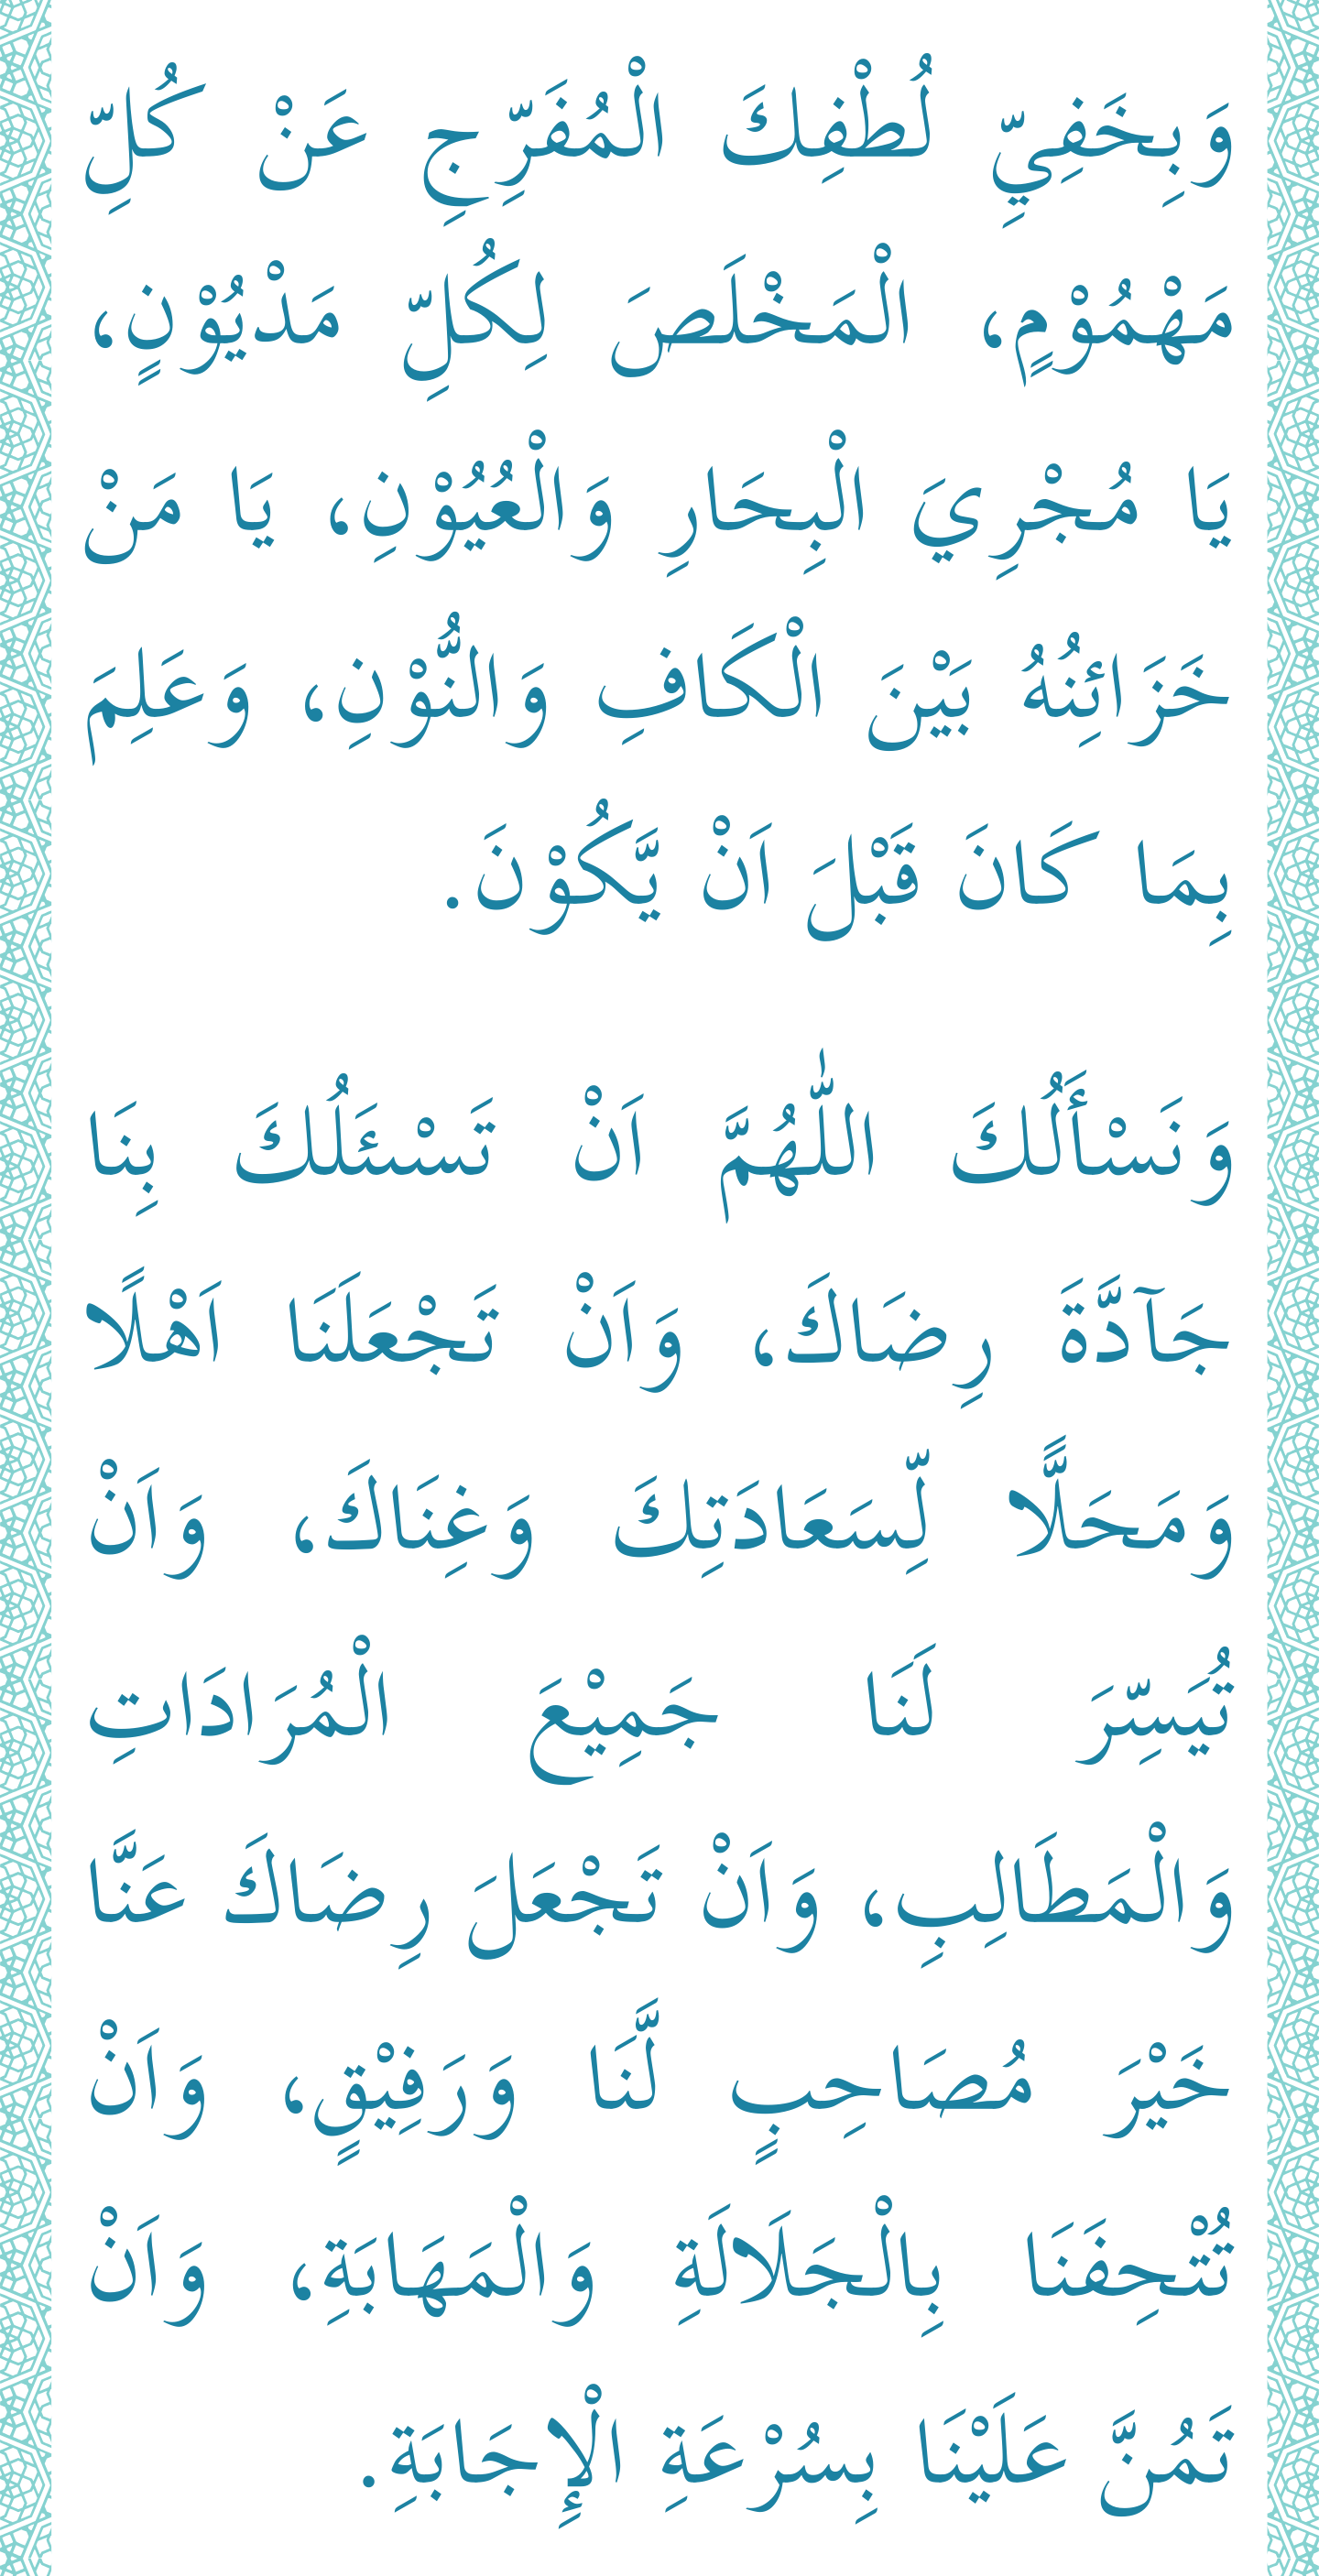 وَبِخَفِيِّ لُطْفِكَ الْمُفَرِّجِ عَنْ كُلِّ
مَهْمُوْمٍ، الْمَخْلَصَ لِكُلِّ مَدْيُوْنٍ،
يَا مُجْرِيَ الْبِحَارِ وَالْعُيُوْنِ، يَا مَنْ
خَزَائِنُهُ بَيْنَ الْكَافِ وَالنُّوْنِ، وَعَلِمَ
بِمَا كَانَ قَبْلَ اَنْ يَّكُوْنَ.
وَنَسْأَلُكَ اللّٰهُمَّ اَنْ تَسْئَلُكَ بِنَا
جَآدَّةَ رِضَاكَ، وَاَنْ تَجْعَلَنَا اَهْلًا
وَمَحَلًّا لِّسَعَادَتِكَ وَغِنَاكَ، وَاَنْ
تُيَسِّرَ لَنَا جَمِيْعَ الْمُرَادَاتِ
وَالْمَطَالِبِ، وَاَنْ تَجْعَلَ رِضَاكَ عَنَّا
خَيْرَ مُصَاحِبٍ لَّنَا وَرَفِيْقٍ، وَاَنْ
تُتْحِفَنَا بِالْجَلَالَةِ وَالْمَهَابَةِ، وَاَنْ
تَمُنَّ عَلَيْنَا بِسُرْعَةِ الْإِجَابَةِ.